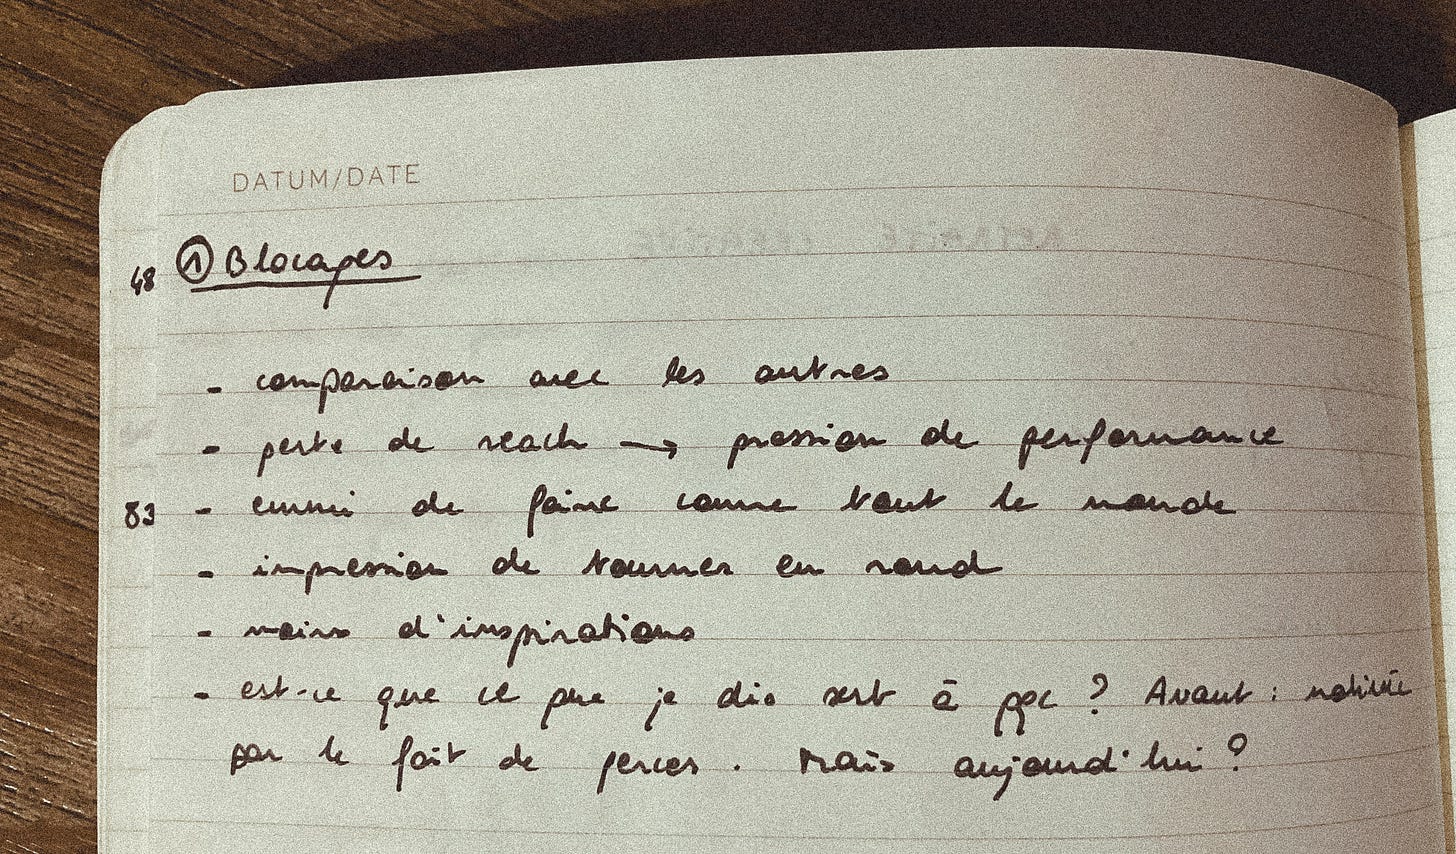 DATUM/DATE
48 ① Blocages
- comparaison avec les autres
- perte de reach → pression de performance
83 - ennui de faire comme tout le monde
- impression de tourner en rond
- moins d'inspirations
- est-ce que ce que je dis sert à qqc ? Avant : motivée
par le fait de percer. Mais aujourd'hui ?